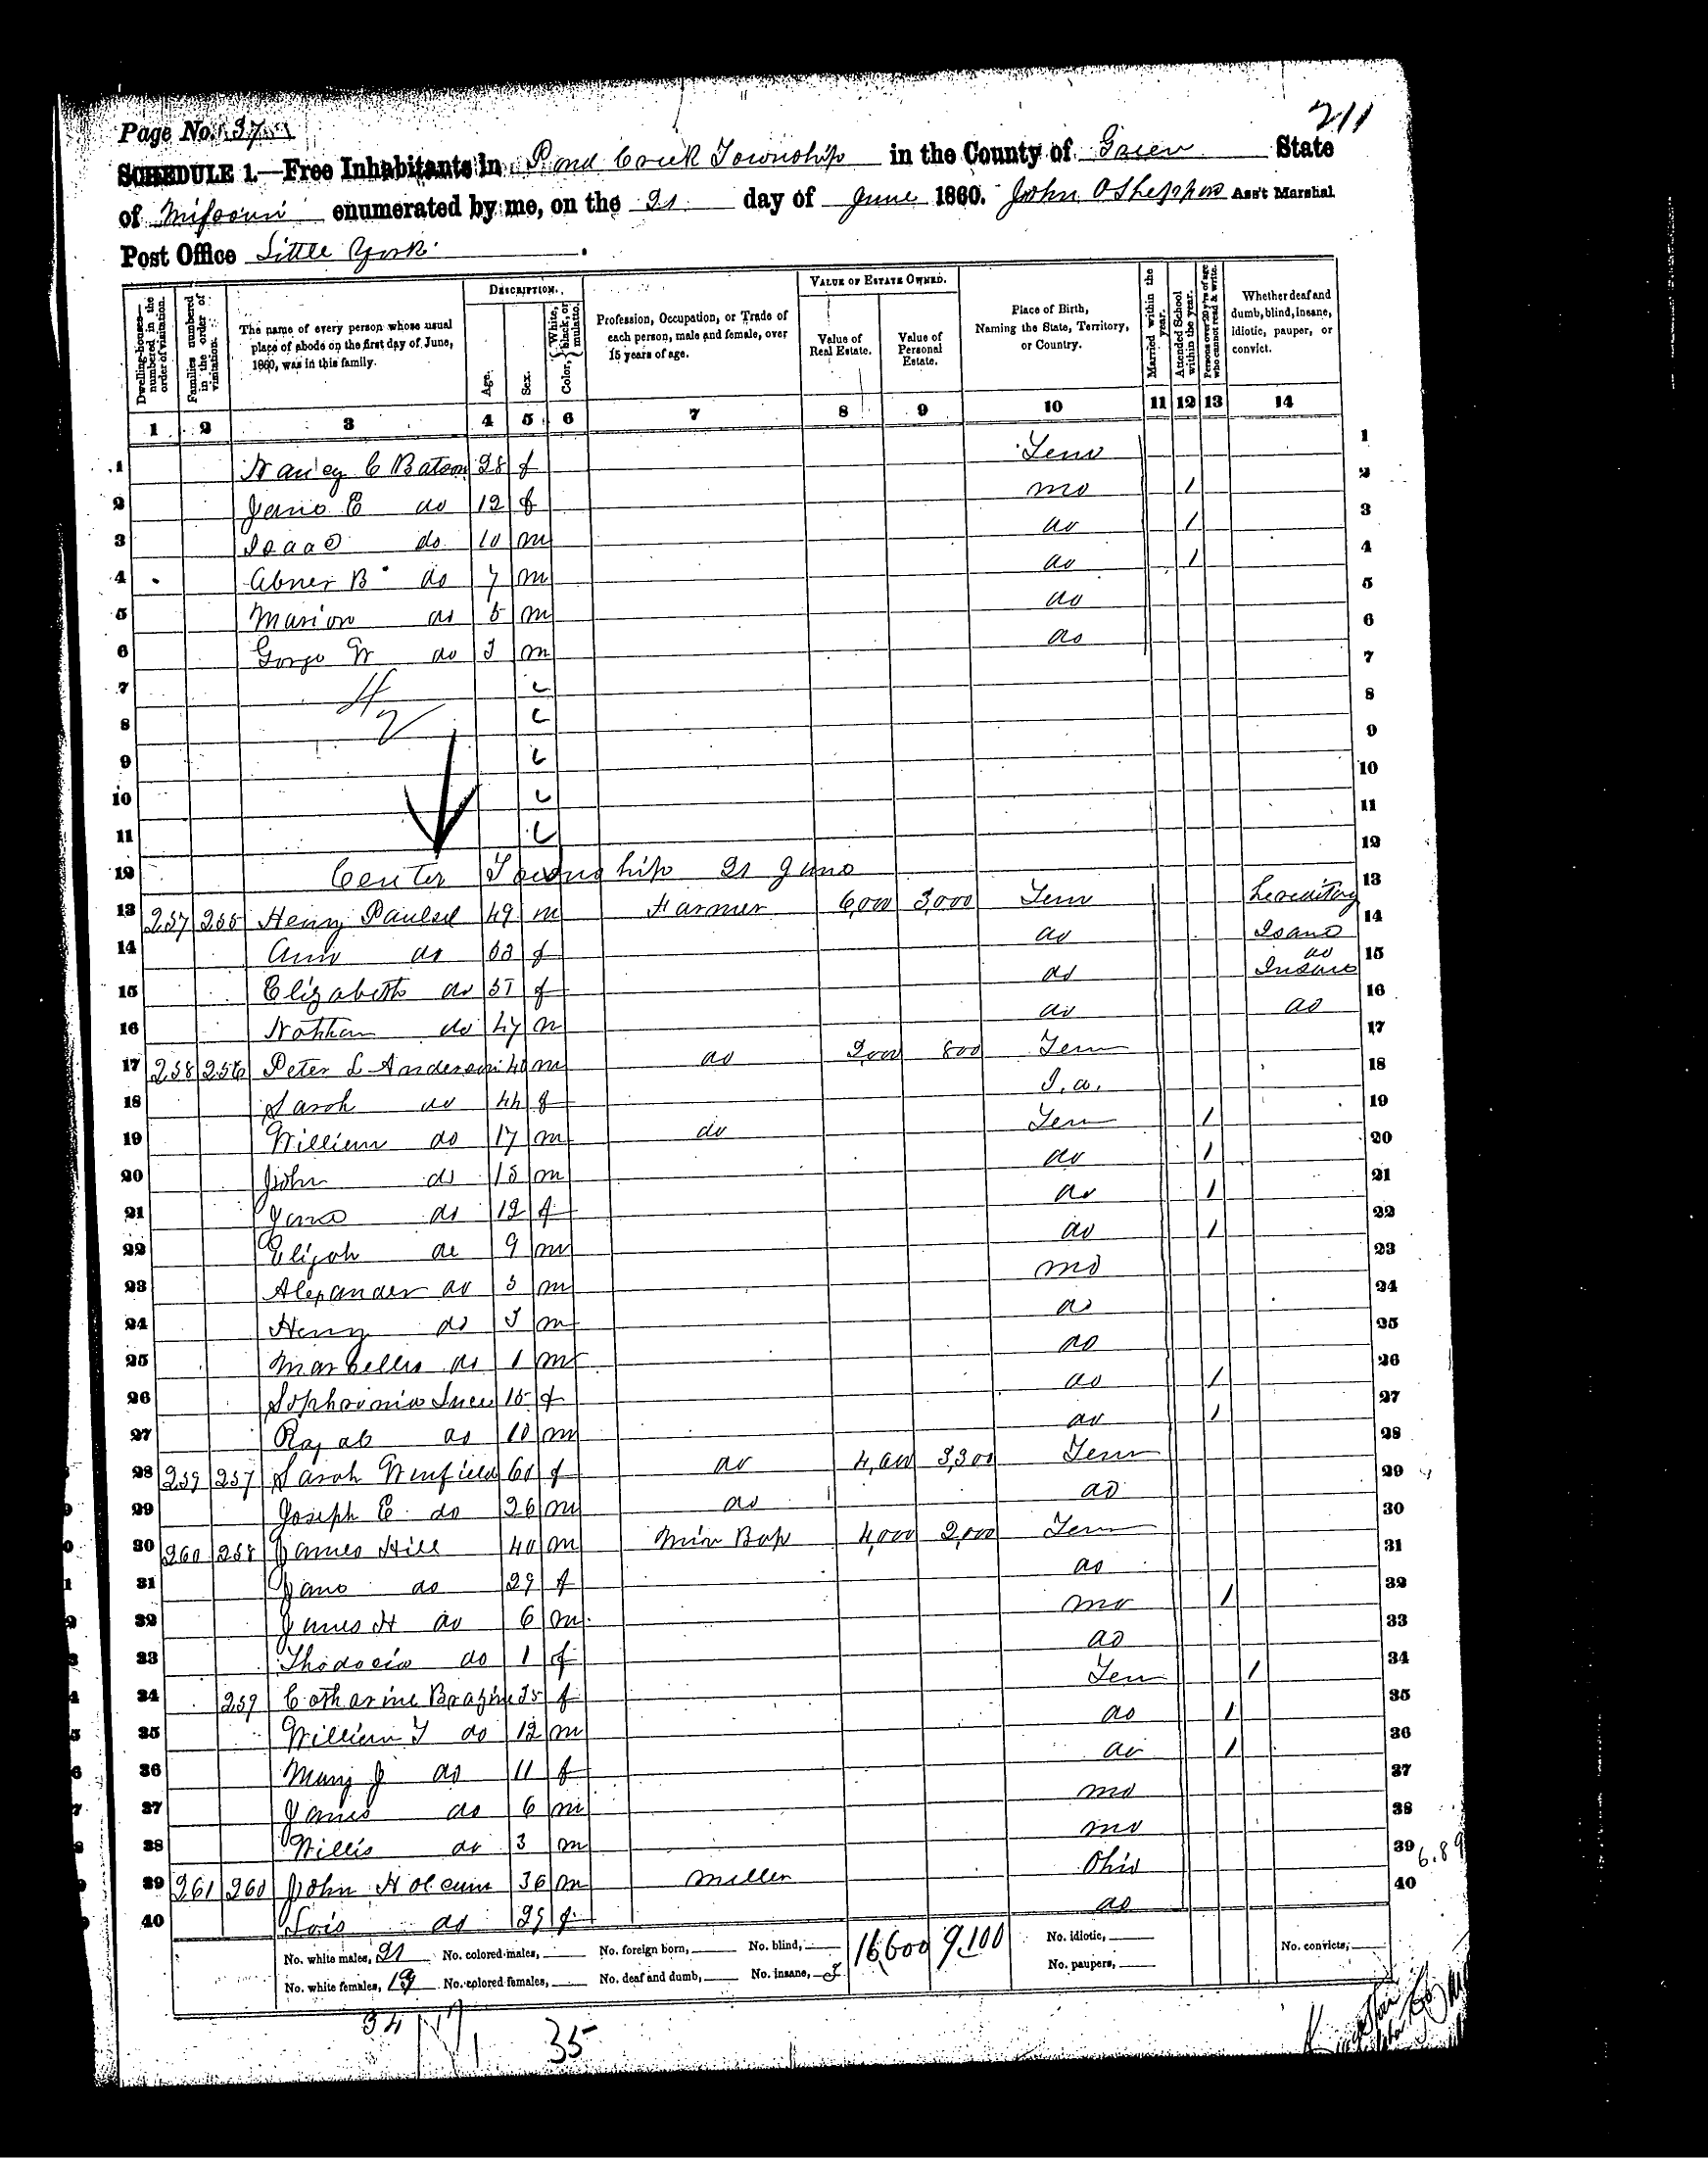 211
Page No. 37
SCHEDULE 1.—Free Inhabitants in Pond Creek Township in the County of Green State
of Missouri enumerated by me, on the 21 day of June 1860. John O Sheppard Ass't Marshal
Post Office Little York.
DESCRIPTION. VALUE OF ESTATE OWNED.
Dwelling-houses—numbered in the order of visitation. Families numbered in the order of visitation. The name of every person whose usual place of abode on the first day of June, 1860, was in this family. Age. Sex. Color, White, black, or mulatto. Profession, Occupation, or Trade of each person, male and female, over 15 years of age. Value of Real Estate. Value of Personal Estate. Place of Birth, Naming the State, Territory, or Country. Married within the year. Attended School within the year. Persons over 20 y'rs of age who cannot read & write. Whether deaf and dumb, blind, insane, idiotic, pauper, or convict.
1 2 3 4 5 6 7 8 9 10 11 12 13 14
1 Nancy C Batson 28 f Tenn 1
2 Jane E do 12 f mo / 2
3 Isaac do 10 m do / 3
4 Abner B do 7 m do / 4
5 Marion do 5 m do 5
6 George W do 3 m do 6
7 7
8 8
9 9
10 10
11 11
12 Center Township 21 June 12
13 257 255 Henry Paulsel 49 m Farmer 6,000 3,000 Tenn hereditary 13
14 Ann do 53 f do Isane 14
15 Elizabeth do 51 f do do Insane 15
16 Nathan do 47 m do do 16
17 258 256 Peter L Anderson 40 m do 2,000 800 Tenn 17
18 Sarah do 44 f 18
19 William do 17 m do Tenn / 19
20 John do 15 m do / 20
21 Jane do 12 f do / 21
22 Elijah do 9 m do / 22
23 Alexander do 5 m mo 23
24 Henry do 3 m do 24
25 Marcellus do 1 m do 25
26 Sophronia 15 f do / 26
27 do 10 m do / 27
28 259 257 Sarah Winfield 60 f do 4,600 3,300 Tenn 28
29 Joseph E do 26 m do do 29
30 260 258 James Hill 40 m Min Bap 4,000 2,000 Tenn 30
31 Jane do 29 f do 31
32 James H do 6 m mo / 32
33 Thodocia do 1 f do 33
34 259 Catharine 35 f Ten / 34
35 William T do 12 m do / 35
36 Mary J do 11 f do / 36
37 James do 6 m mo 37
38 Willis do 3 m mo 38
39 261 260 John Holcum 36 m Miller Ohio 39
40 Lois do 25 f do 40
6.89
No. white males, 21 No. colored males, No. foreign born, No. blind, 16,600 9,100 No. idiotic, No. convicts,
No. white females, 19 No. colored females, No. deaf and dumb, No. insane, 3 No. paupers,
34 35